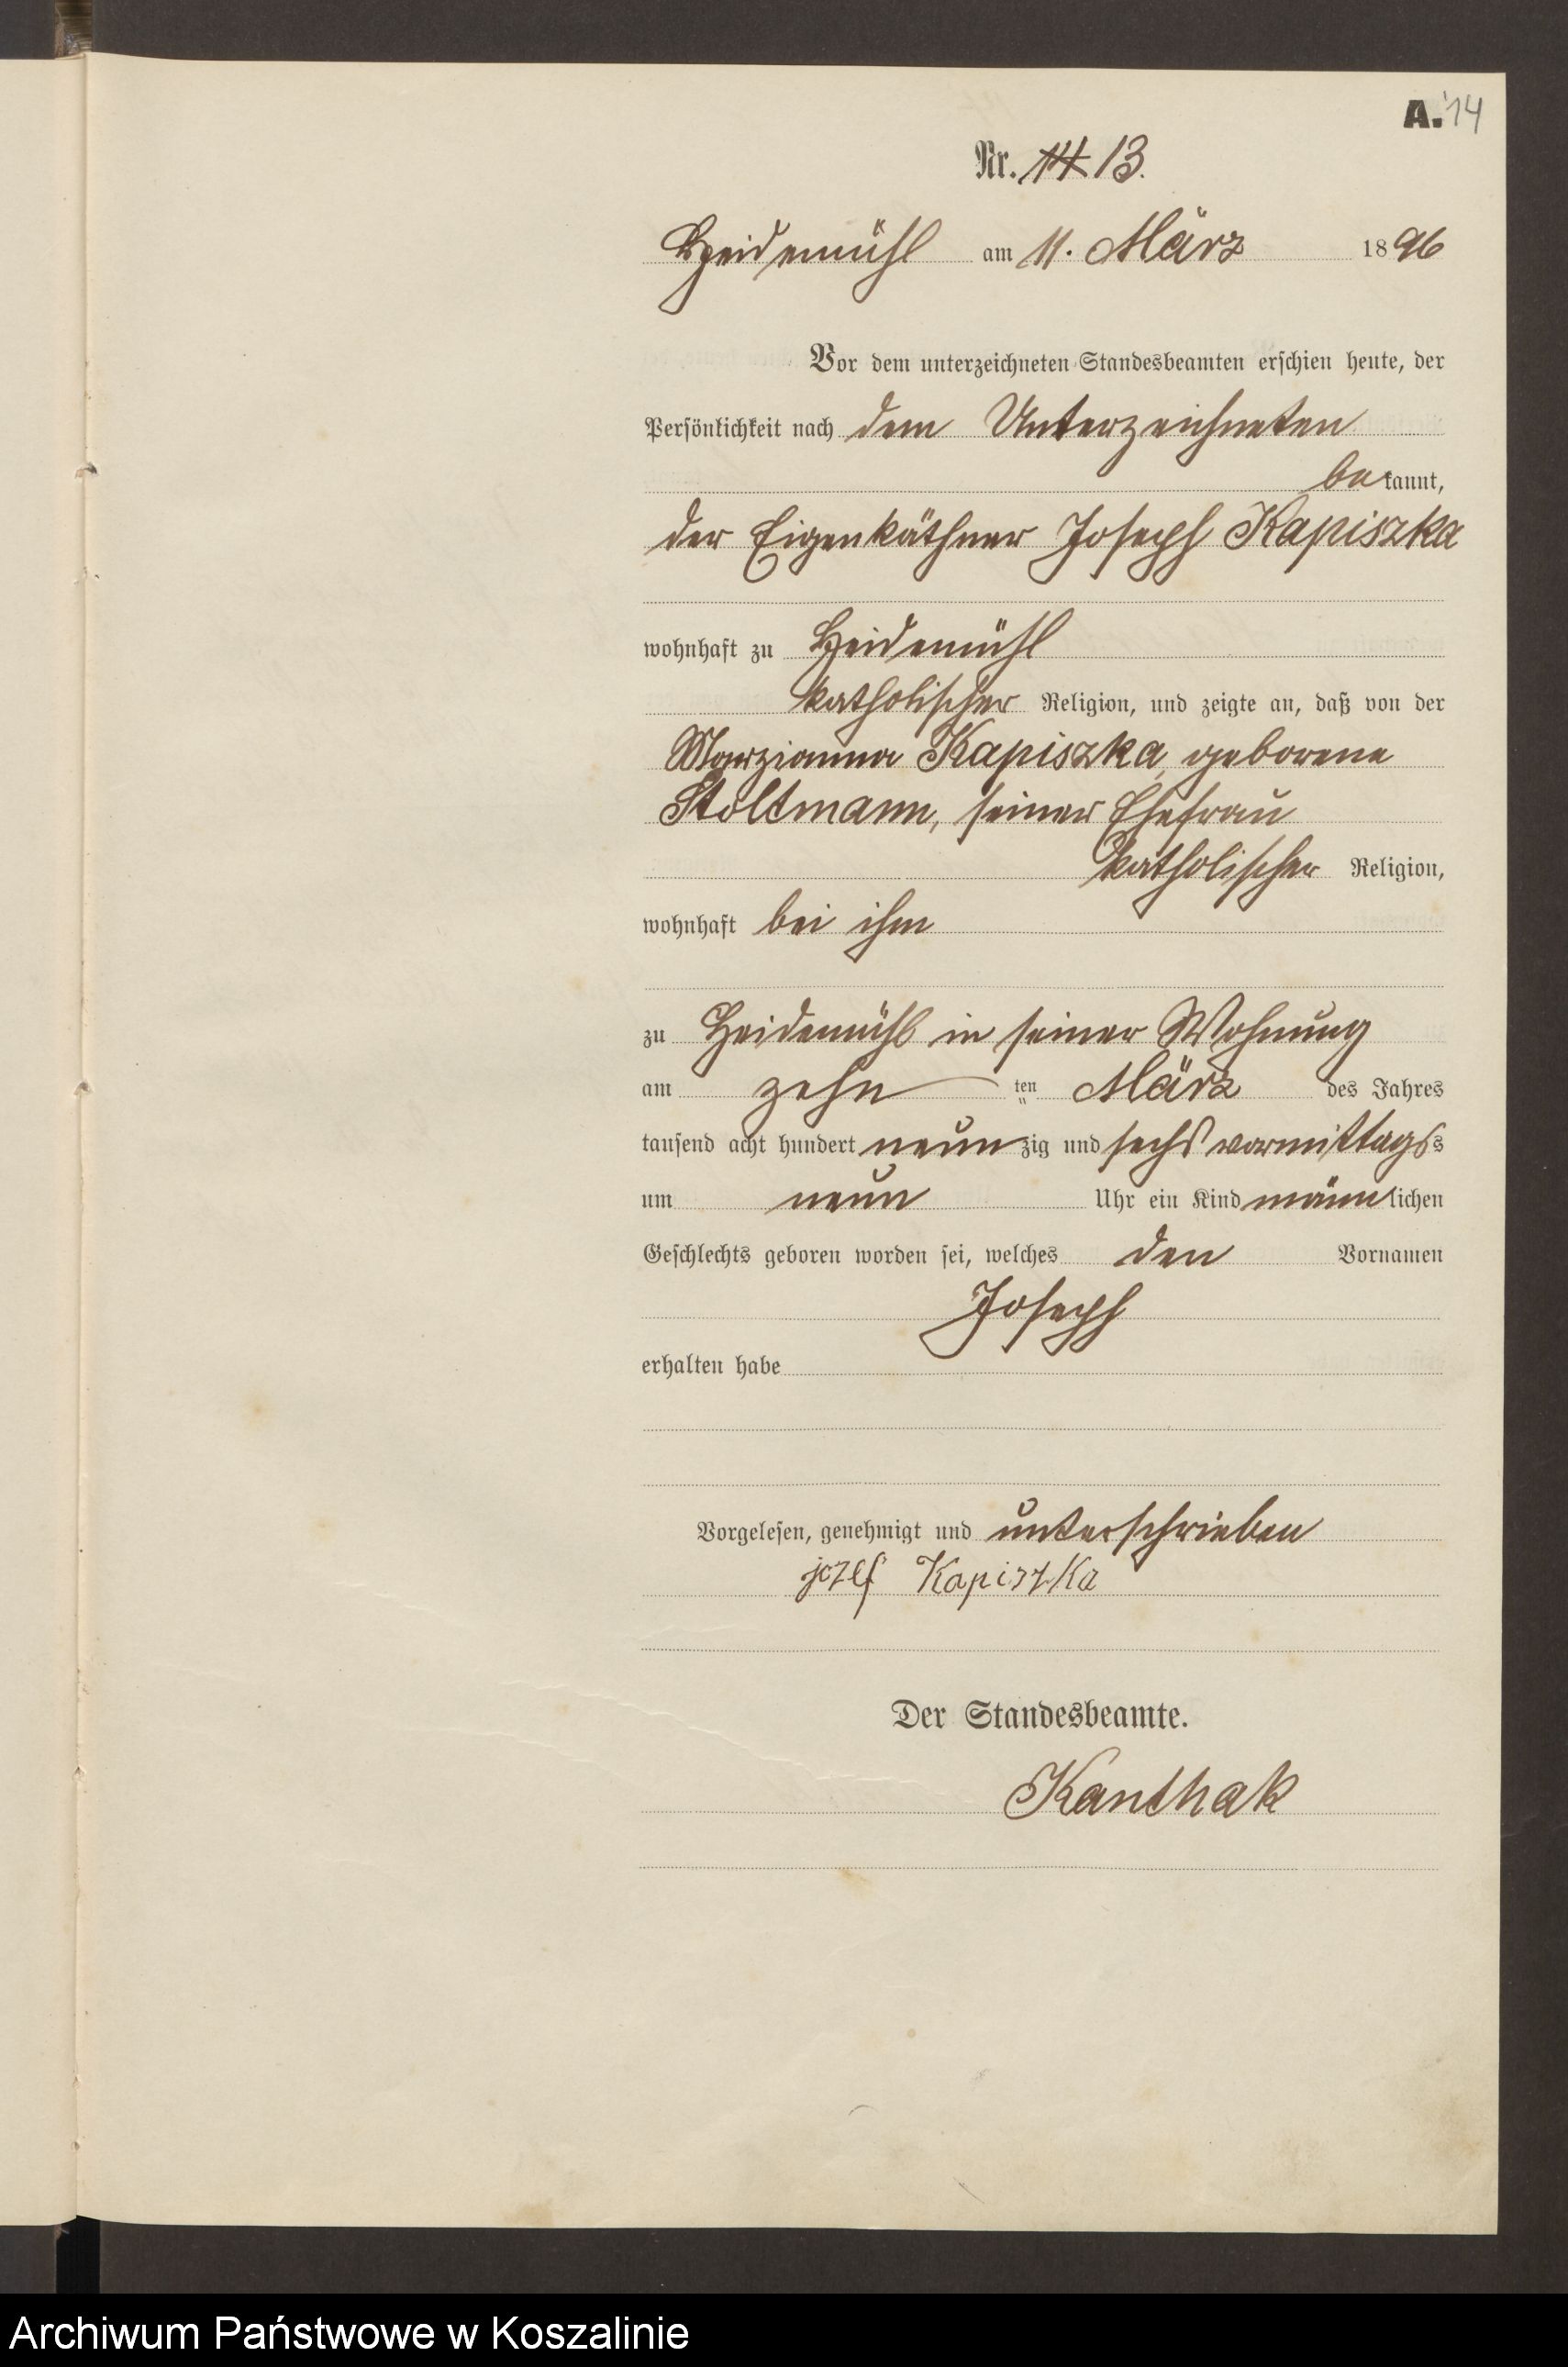 A. 14
Nr. 14 13.
Heidemühl am 11. März 1896
Vor dem unterzeichneten Standesbeamten erschien heute, der
Persönlichkeit nach dem Unterzeichneten
bekannt,
der Eigenkäthner Joseph Kapiszka
wohnhaft zu Heidemühl
katholischer Religion, und zeigte an, daß von der
Marzianna Kapiszka, geborene
Stoltmann, seiner Ehefrau
katholischer Religion,
wohnhaft bei ihm
zu Heidemühl in seiner Wohnung
am zehn ten März des Jahres
tausend acht hundert neunzig und sechs vormittags
um neun Uhr ein Kind männlichen
Geschlechts geboren worden sei, welches den Vornamen
Joseph
erhalten habe
Vorgelesen, genehmigt und unterschrieben
jozef Kapiszka
Der Standesbeamte.
Kanthak
Archiwum Państwowe w Koszalinie